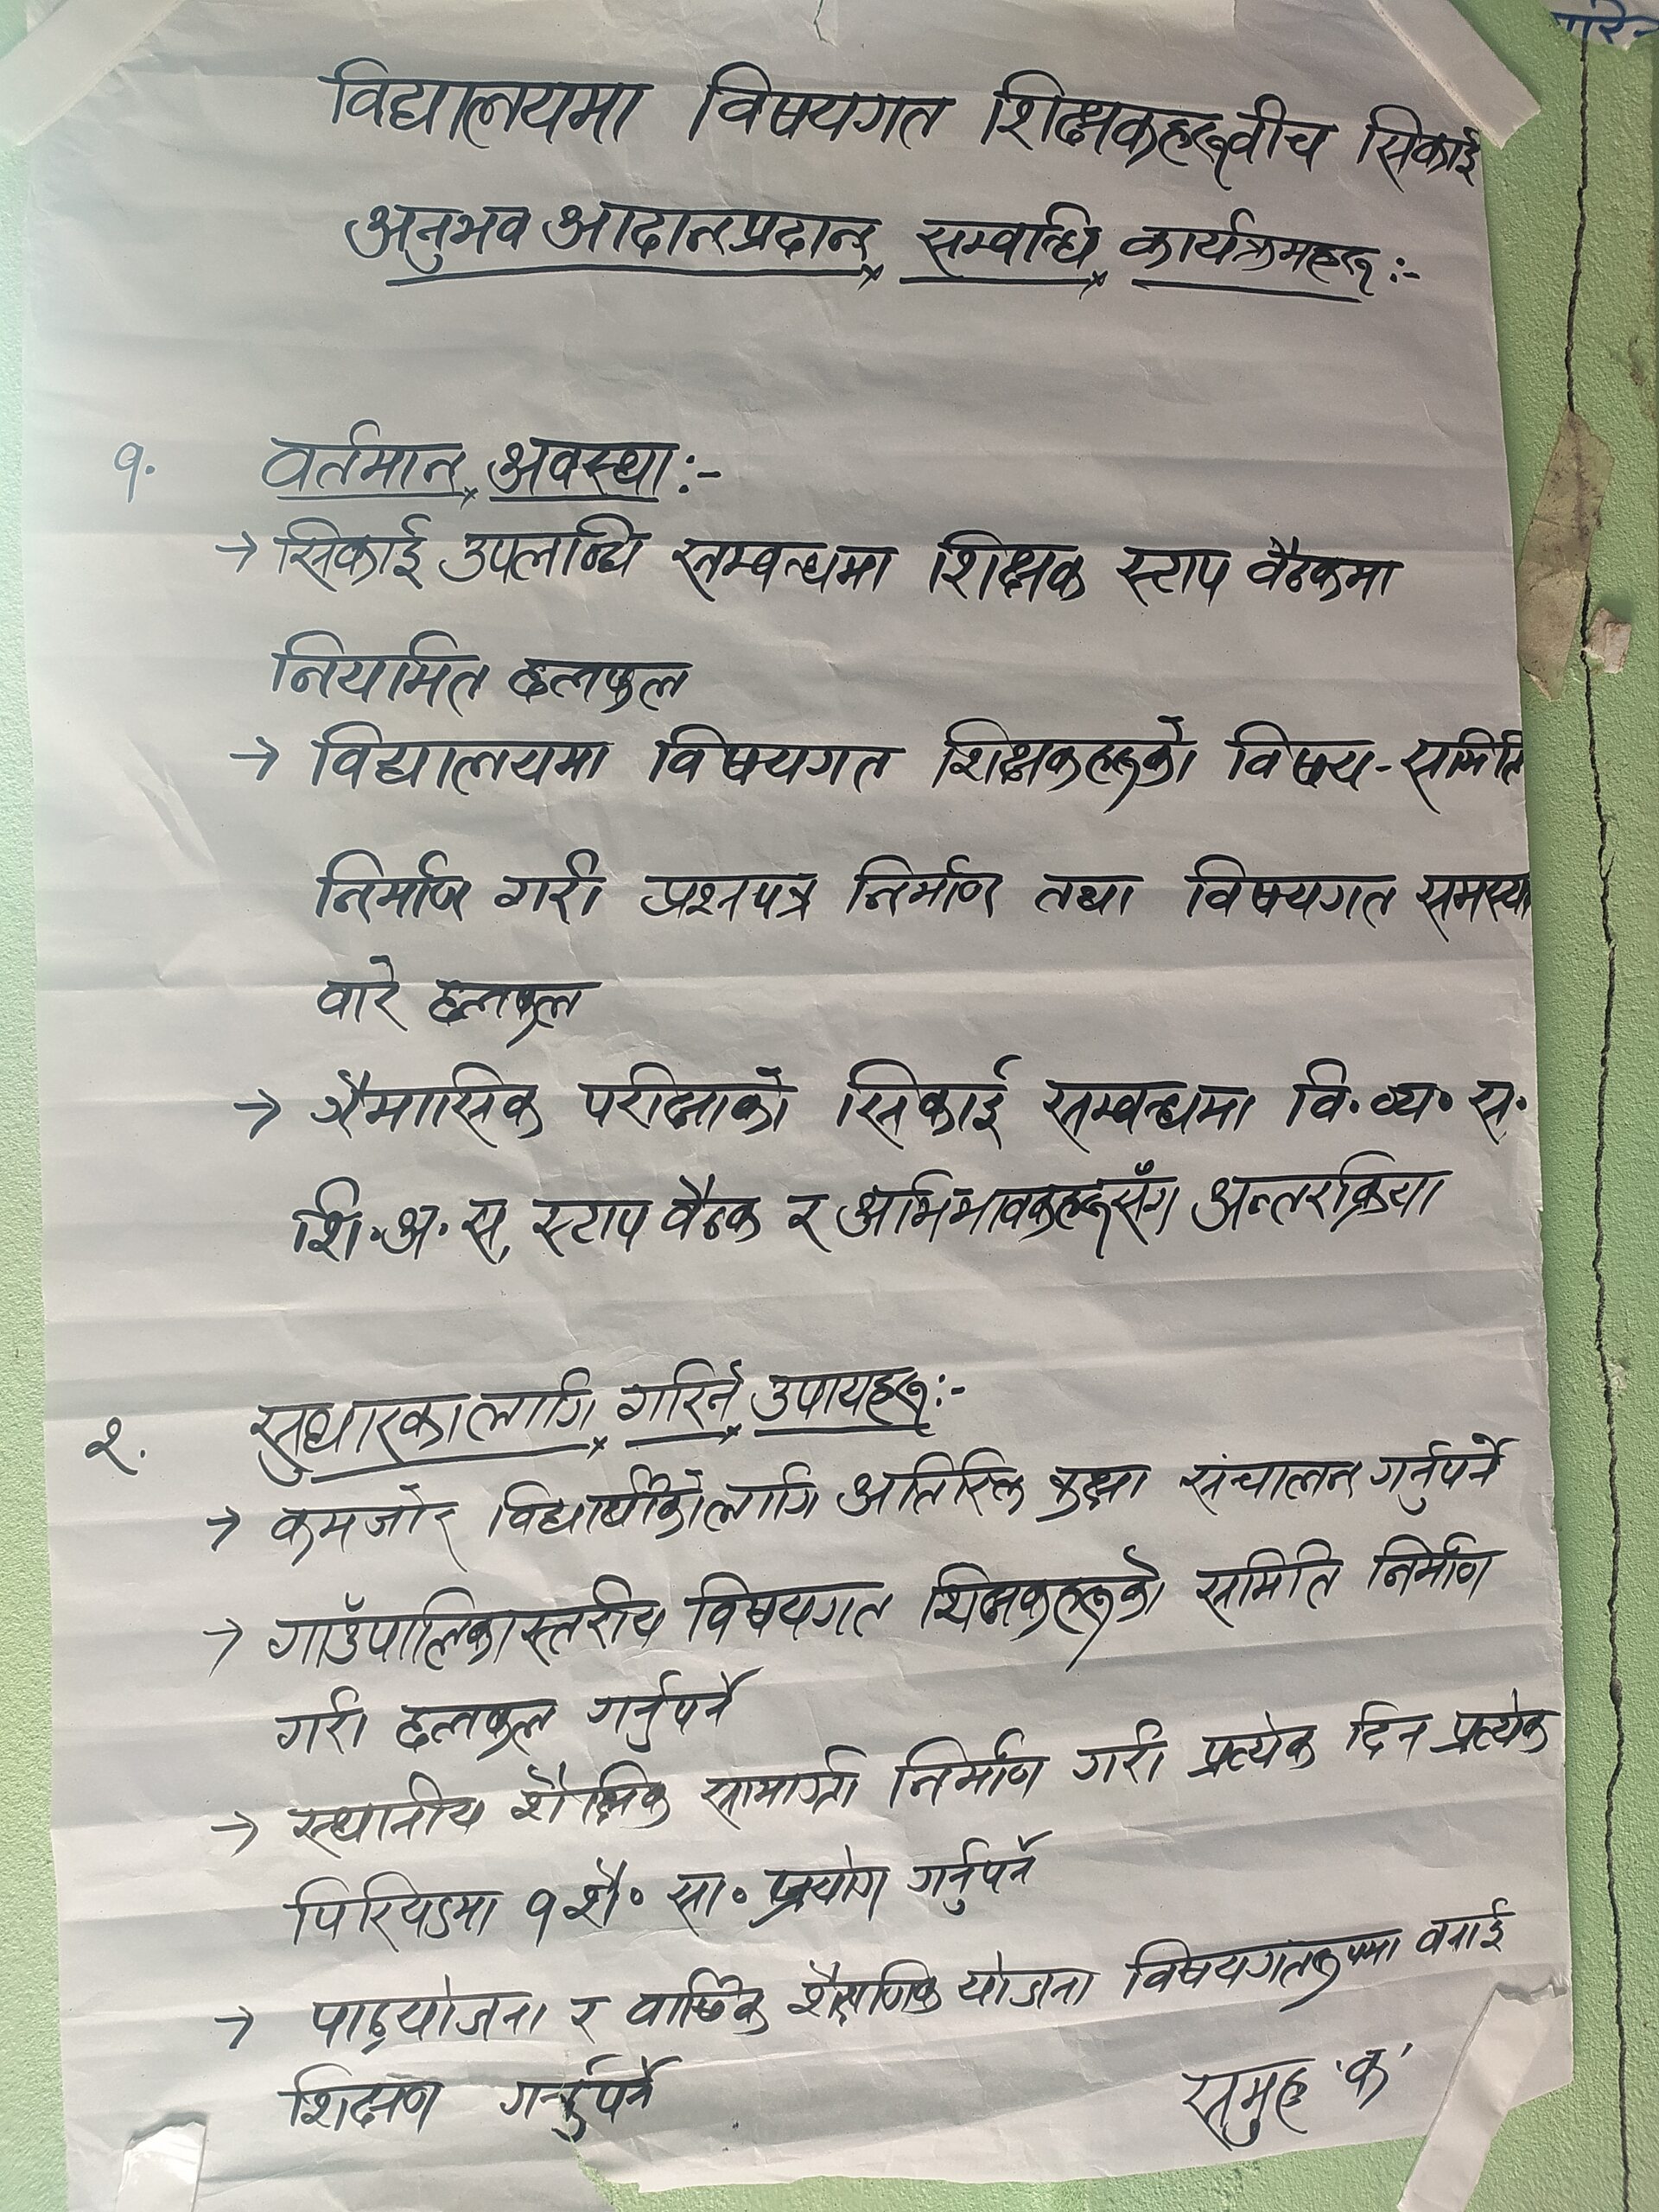 विद्यालयमा विषयगत शिक्षकहरूवीच सिकाई
अनुभव आदानप्रदान सम्वन्धि कार्यक्रमहरू :-
१. वर्तमान अवस्था :-
→ सिकाई उपलब्धि सम्वन्धमा शिक्षक स्टाप वैठकमा
नियमित छलफल
→ विद्यालयमा विषयगत शिक्षकहरूको विषय-समिति
निर्माण गरी प्रश्नपत्र निर्माण तथा विषयगत समस्या
वारे छलफल
→ त्रैमासिक परीक्षाको सिकाई सम्वन्धमा वि.व्य.स.
शि.अ.स, स्टाप वैठक र अभिभावकहरूसँग अन्तरक्रिया
२. सुधारकालागि गरिने उपायहरू :-
→ कमजोर विद्यार्थीकोलागि अतिरिक्त कक्षा संचालन गर्नुपर्ने
→ गाउँपालिकास्तरीय विषयगत शिक्षकहरूको समिति निर्माण
गरी छलफल गर्नुपर्ने
→ स्थानीय शैक्षिक सामाग्री निर्माण गरी प्रत्येक दिन प्रत्येक
पिरियडमा १ शै. सा. प्रयोग गर्नुपर्ने
→ पाठ्योजना र वार्षिक शैक्षणिक योजना विषयगतरुपमा वनाई
शिक्षण गर्नुपर्ने
समुह 'क'